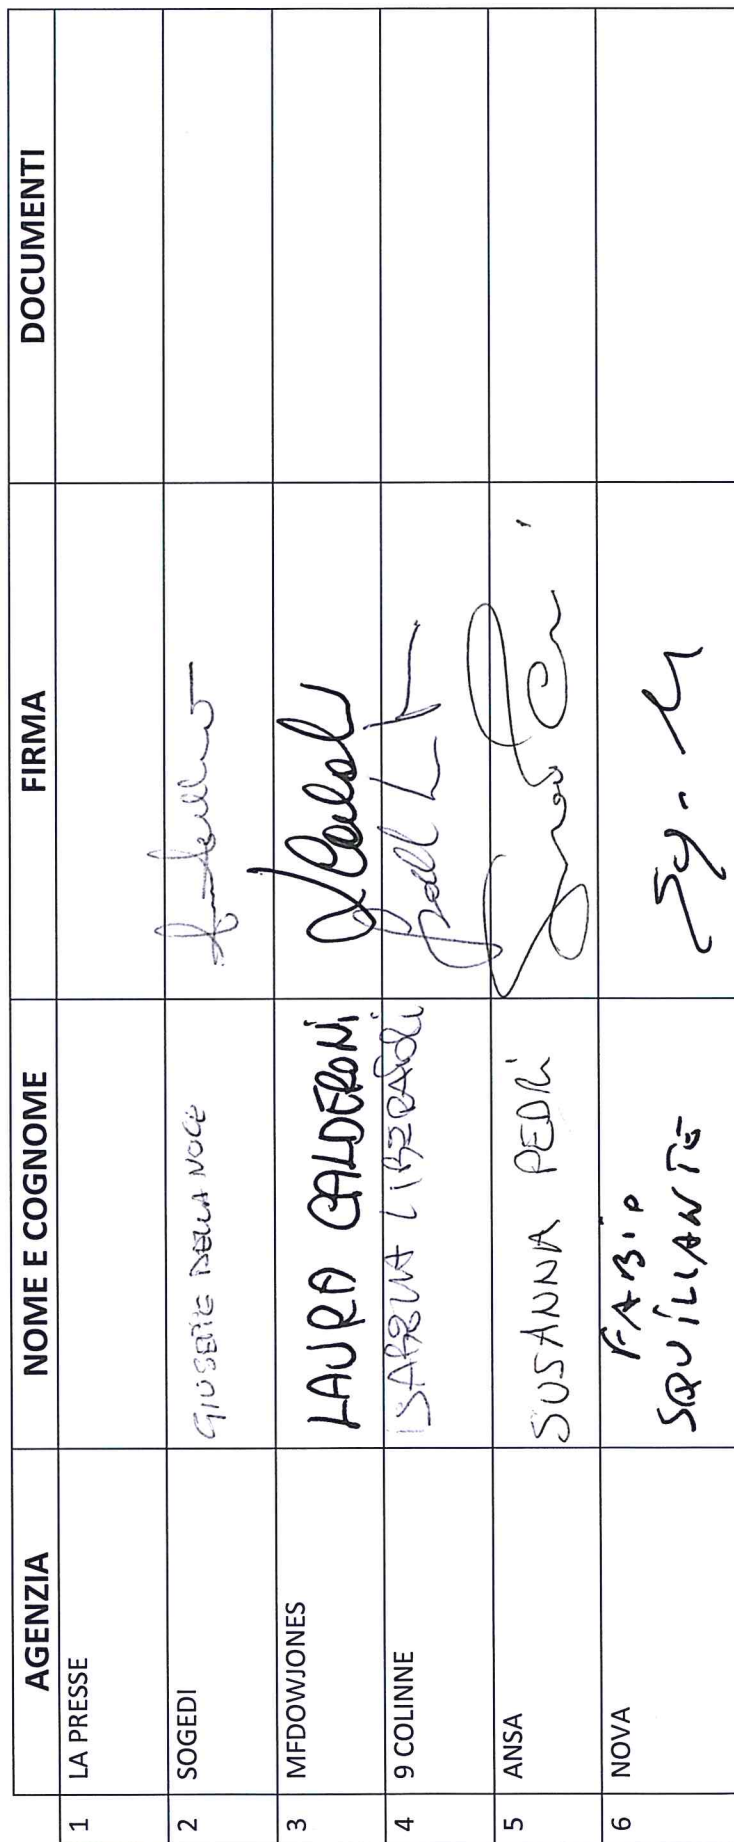 AGENZIA NOME E COGNOME FIRMA DOCUMENTI
1 LA PRESSE
2 SOGEDI GIUSEPPE DELLA NOCE
3 MFDOWJONES LAURA CALDERONI
4 9 COLINNE ISABELLA LIBERATORI
5 ANSA SUSANNA PEDRI
6 NOVA FABIO
SQUILLANTE